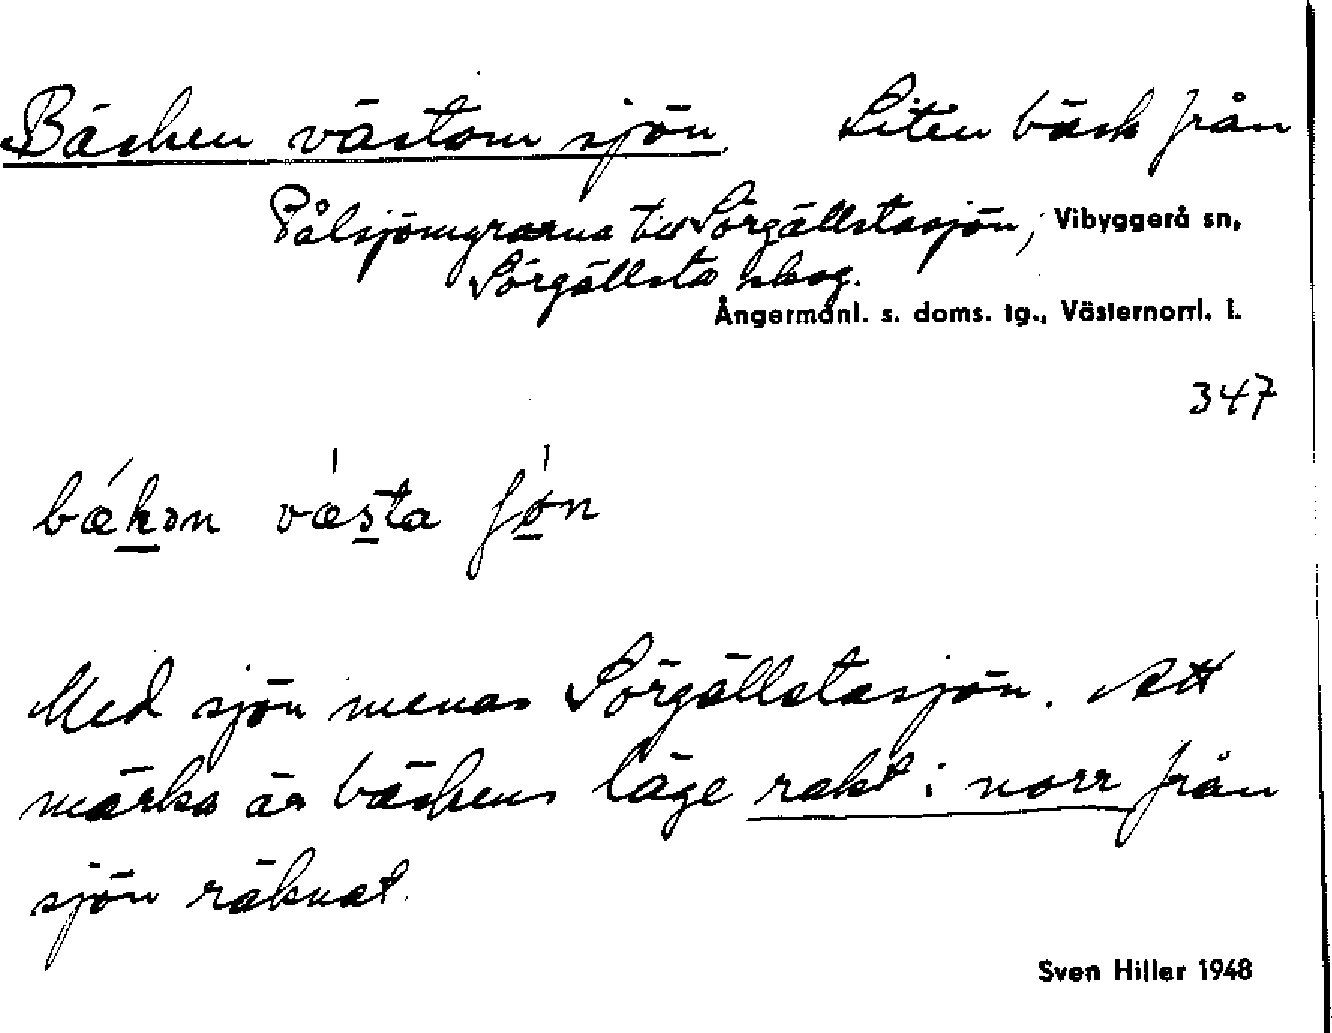 Bäcken västom sjön. Liten bäck från
Pålsjömyrarna till Sörgällstasjön; Vibyggerå sn,
Sörgällsta skog.
Ångermanl. s. doms. tg., Västernorrl. l.
347
bækən væsta ʃøn
Med sjön menas Sörgällstasjön. Att
märka är bäckens läge rakt i norr från
sjön räknat.
Sven Hiller 1948